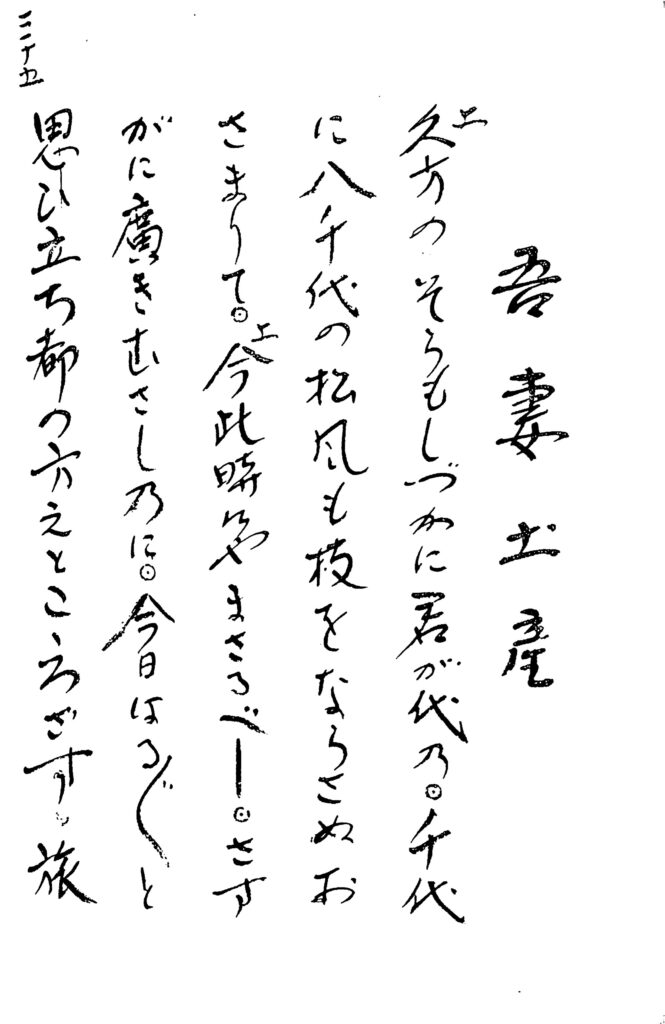 吾妻土産
上
久方のそらもしづかに君が代乃。千代
に八千代の松風も枝をならさぬお
さまりて。
上
今此時ぞまさるべし。さす
がに廣きむさし乃に。今日はる〴〵と
思ひ立ち都の方えところざす。旅
三十五